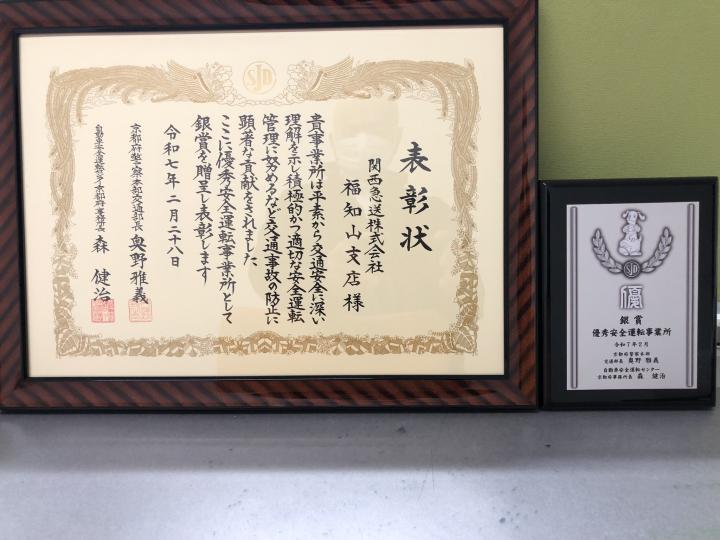 SJD
表彰状
関西急送株式会社
福知山支店様
貴事業所は平素から交通安全に深い
理解を示し積極的かつ適切な安全運転
管理に努めるなど交通事故の防止に
顕著な貢献をされました
ここに優秀安全運転事業所として
銀賞を贈呈し表彰します
令和七年二月二十八日
京都府警察本部交通部長 奥野雅義
自動車安全運転センター京都府事務所長 森健治
SJD
優
銀賞
優秀安全運転事業所
令和7年2月
京都府警察本部
交通部長 奥野雅義
自動車安全運転センター
京都府事務所長 森健治